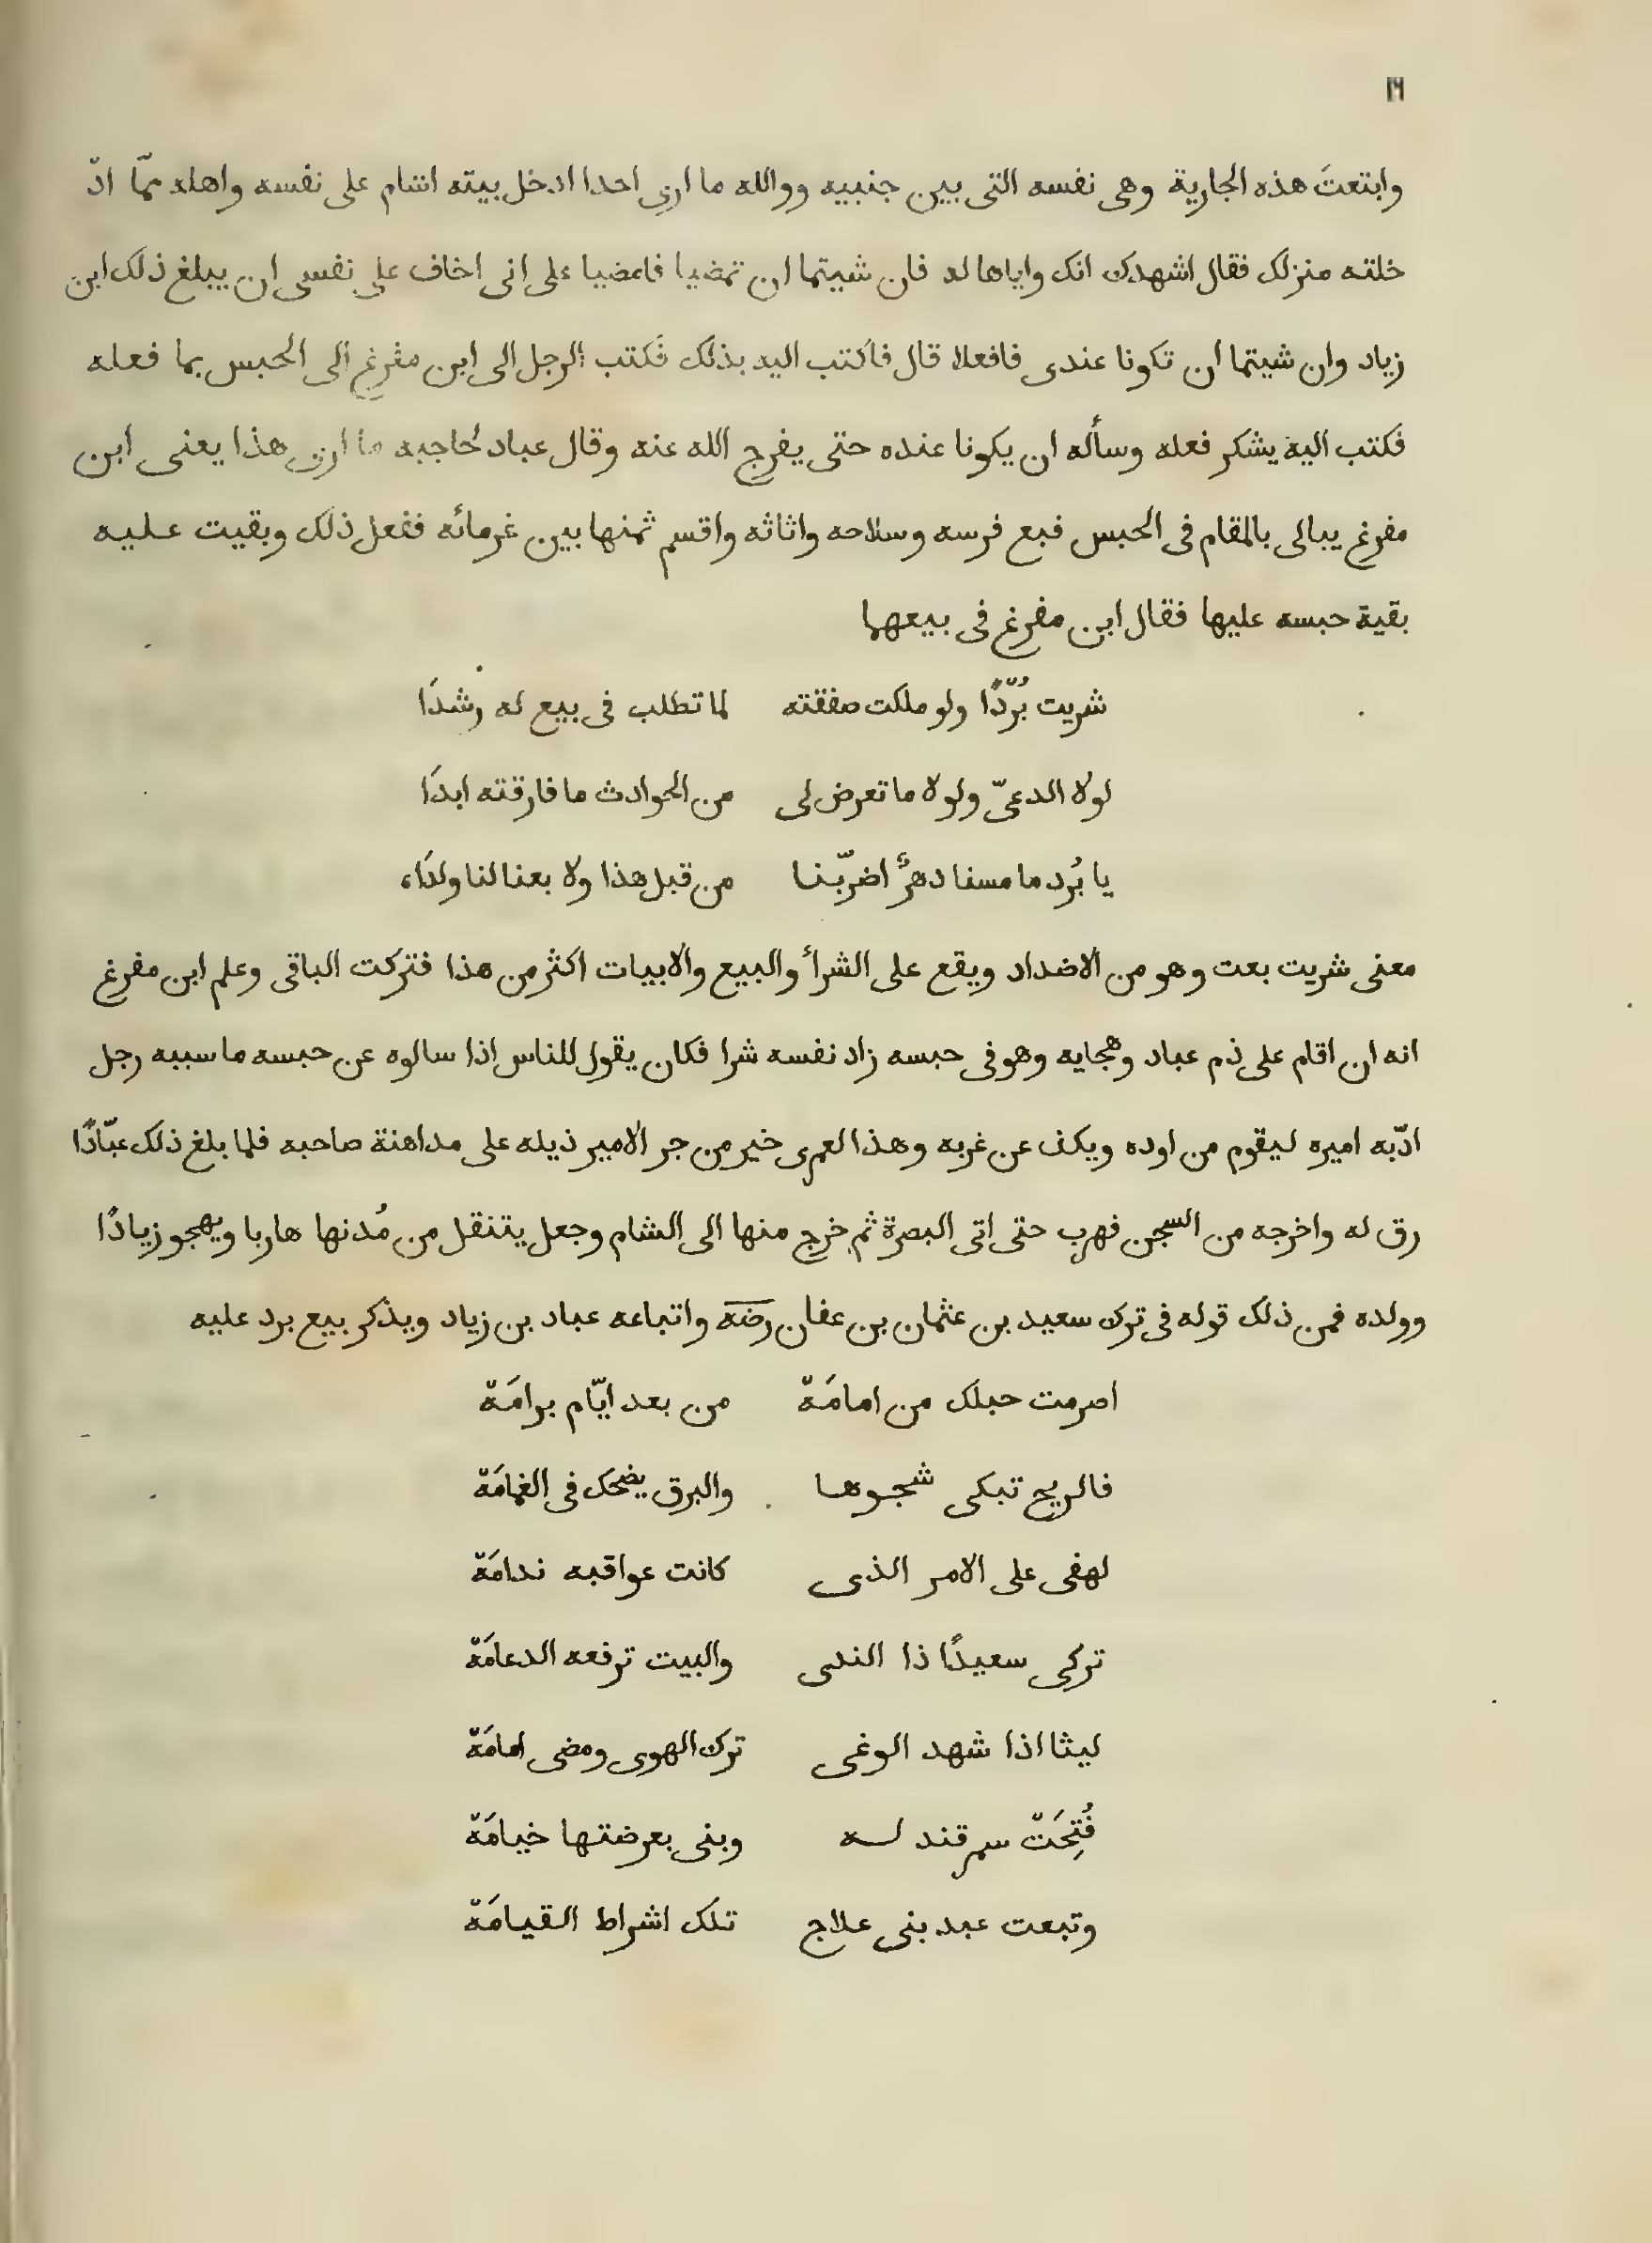 وابتعتَ هذه الجارية وهى نفسه التى بين جنبيه ووالله ما ارى احدا ادخل بيته اشام على نفسه واهله ممّا ادّ
خلته منزلك فقال اشهدك انك واياها له فان شيتما ان تمضيا فامضيا على انى اخاف على نفسى ان يبلغ ذلك ابن
زياد وان شيتما ان تكونا عندى فافعلا قال فاكتب اليه بذلك فكتب الرجل الى ابن مفرغ الى الحبس بما فعله
فكتب اليه يشكر فعله وسأله ان يكونا عنده حتى يفرج الله عنه وقال عباد لحاجبه ما ارى هذا يعنى ابن
مفرغ يبالى بالمقام فى الحبس فبع فرسه وسلاحه واثاثه واقسم ثمنها بين غرمائه ففعل ذلك وبقيت عليه
بقية حبسه عليها فقال ابن مفرغ فى بيعهما
شريت بُرّدًا ولو ملكت صفقته لما تطلب فى بيع له رشدَا
لولا الدعىّ ولولا ما تعرض لى من الحوادث ما فارقته ابدَا
يا بُرد ما مسنا دهرٌ اضرّ بنا من قبل هذا ولا بعنا لنا ولدَا
معنى شريت بعت وهو من الاضداد ويقع على الشرأ والبيع والابيات اكثر من هذا فتركت الباقى وعلم ابن مفرغ
انه ان اقام على ذم عباد وهجايه وهو فى حبسه زاد نفسه شرا فكان يقول للناس اذا سالوه عن حبسه ما سببه رجل
ادّبه اميره ليقوم من اوده ويكف عن غربه وهذا لعمرى خير من جر الامير ذيله على مداهنة صاحبه فلما بلغ ذلك عبّادًا
رق له واخرجه من السجن فهرب حتى اتى البصرة ثم خرج منها الى الشام وجعل يتنقل من مُدنها هاربا ويهجو زيادًا
وولده فمن ذلك قوله فى ترك سعيد بن عثمان بن عفان رضه واتباعه عباد بن زياد ويذكر بيع برد عليه
اصرمت حبلك من امامَةْ من بعد ايّام برامَةْ
فالريح تبكى شجوها والبرق يضحك فى الغمامَةْ
لهفى على الامر الذى كانت عواقبه ندامَةْ
تركى سعيدًا ذا الندى والبيت ترفعه الدعامَةْ
ليثا اذا شهد الوغى ترك الهوى ومضى امامَهْ
فُتِحَتْ سمرقند له وبنى بعرضتها خيامَهْ
وتبعت عبد بنى علاج تلك اشراط القيامَةْ